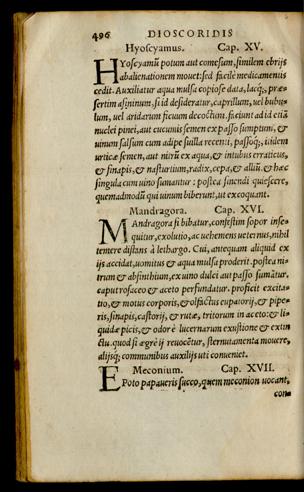 496 DIOSCORIDIS
Hyoscyamus. Cap. XV.
HYoscyamũ potum aut comesum, similem ebrijs
abalienationem mouet: sed facilè medicamentis
cedit. Auxiliatur aqua mulsa copiose data, lacq;, præ-
sertim asininum, si id desideratur, caprillum, uel bubu-
lum, uel aridarum ficuum decoctum. faciunt ad id etiã
nuclei pinei, aut cucumis semen ex passo sumptum, &
uinum salsum cum adipe suilla recenti, passoq;, itidem
urticæ semen, aut nitrũ ex aqua, & intubus erraticus,
& sinapis, & nasturtium, radix, cepa, & alliũ. & hæc
singula cum uino sumantur: postea sinendi quiescere,
quemadmodũ qui uinum biberunt, ut excoquant.
Mandragora. Cap. XVI.
MAndragora si bibatur, confestim sopor inse-
quitur, exolutio, ac uehemens ueternus, nihil
temere distans à lethargo. Cui, antequam aliquid ex
ijs accidat, uomitus & aqua mulsa proderit. postea ni-
trum & absinthium, ex uino dulci aut passo sumãtur.
caput rosaceo & aceto perfundatur. proficit excita-
tio, & motus corporis, & olfactus cupatorij, & pipe-
ris, sinapis, castorij, & rutæ, tritorum in aceto: & li-
quidæ picis, & odorē lucernarum exustione & extin
ctu. quod si ægrè ij reuocẽtur, sternutamenta mouere,
alijsq; communibus auxilijs uti conueniet.
Meconium. Cap. XVII.
EPoto papaueris succo, quem meconion uocant,
con-